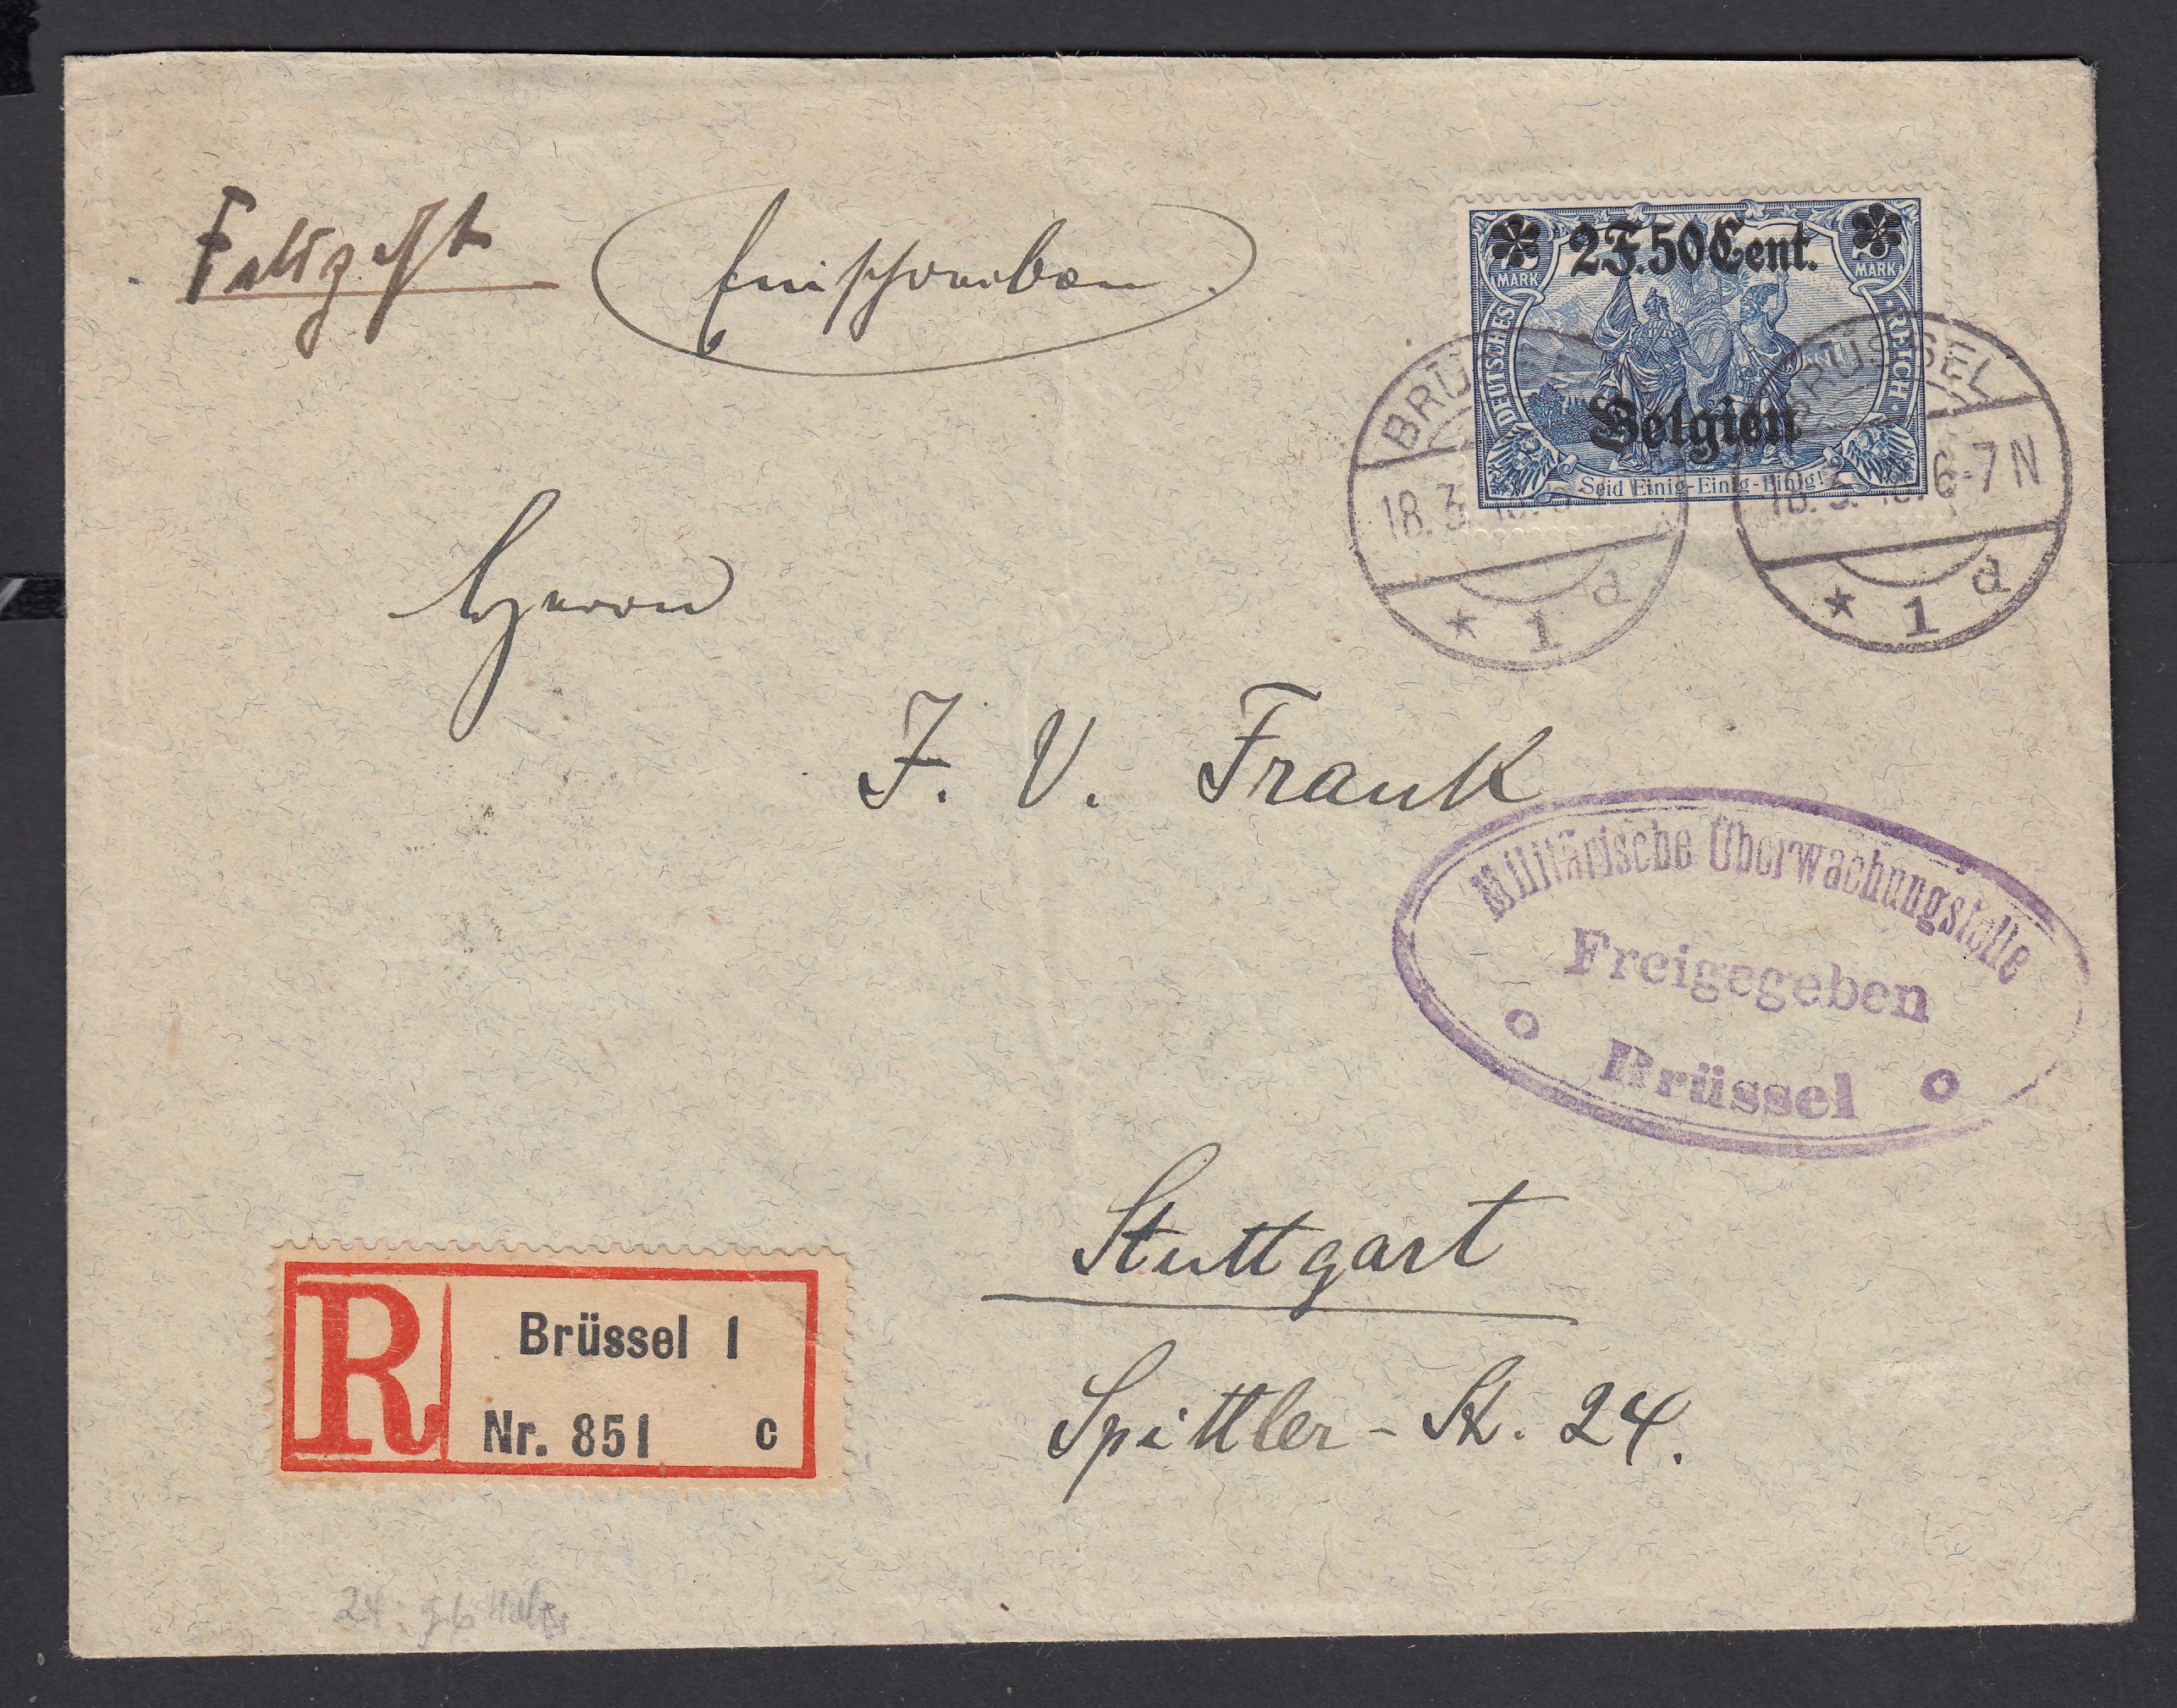 Einschreiben
2F.50Cent.
MARK MARK
DEUTSCHES REICH
Belgien
Seid Einig-Einig-Einig!
BRÜSSEL
18.3.
* 1 d
BRÜSSEL
18.3. 6-7N
* 1 d
Herrn
J. V. Frank
Militärische Überwachungstelle
Freigegeben
Brüssel
Stuttgart
Spittler-St. 24.
R
Brüssel 1
Nr. 851 c